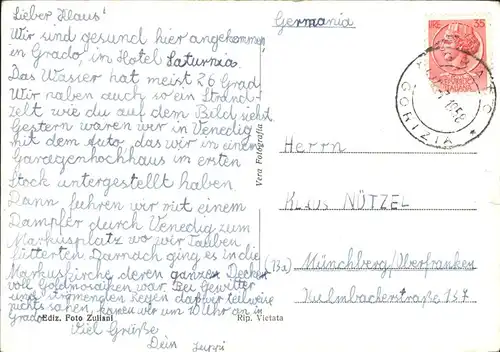 Lieber Klaus!
Wir sind gesund hier angekommen
in Grado, im Hotel Saturnia.
Das Wasser hat meist 26 Grad.
Wir haben auch so ein Strand-
zelt wie du auf dem Bild siehst.
Gestern waren wir in Venedig
mit dem Auto, das wir in einem
Garagenhochhaus im ersten
Stock untergestellt haben.
Dann fuhren wir mit einem
Dampfer durch Venedig zum
Markusplatz wo wir Tauben
fütterten. Darnach ging es in die
Markuskirche deren ganze Decke
voll Goldmosaiken war. Bei Gewitter
und strömenden Regen daher teilweise
nichts sahen, kamen wir um 10 Uhr an in
Grado
Viel Grüße
Dein
Ediz. Foto Zuliani
Rip. Vietata
Vera Fotografia
Germania
35
GORIZIA
Herrn
Klaus NÜTZEL
(13a) Münchberg/Oberfranken
Kulmbacherstraße 157